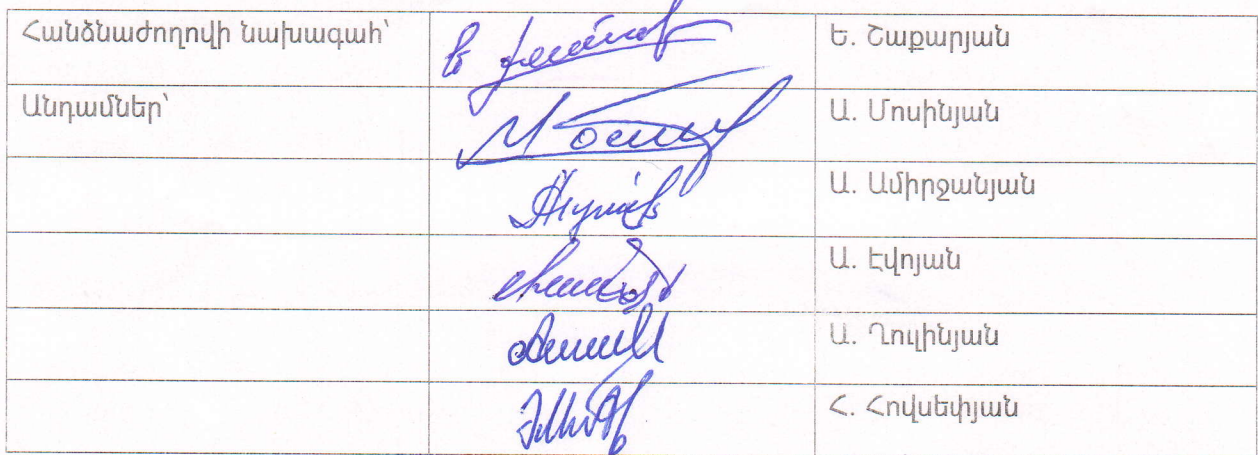 Հանձնաժողովի նախագահ՝ Ե. Զաքարյան
Անդամներ՝ Ա. Մոսինյան
Ա. Ամիրջանյան
Ա. Էվոյան
Ա. Ղուլինյան
Հ. Հովսեփյան